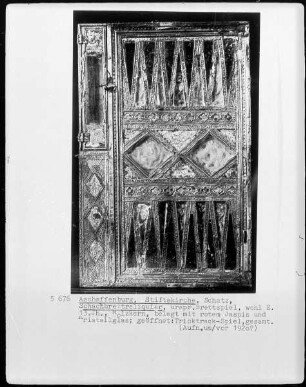 5 676 Aschaffenburg, Stiftskirche, Schatz,
Schachbrettreliquiar, urspr. Brettspiel, wohl E.
13.Jh., Holzkern, belegt mit rotem Jaspis und
Kristallglas; geöffnet: Tricktrack-Spiel, gesamt.
(Aufn. um/vor 1928?)